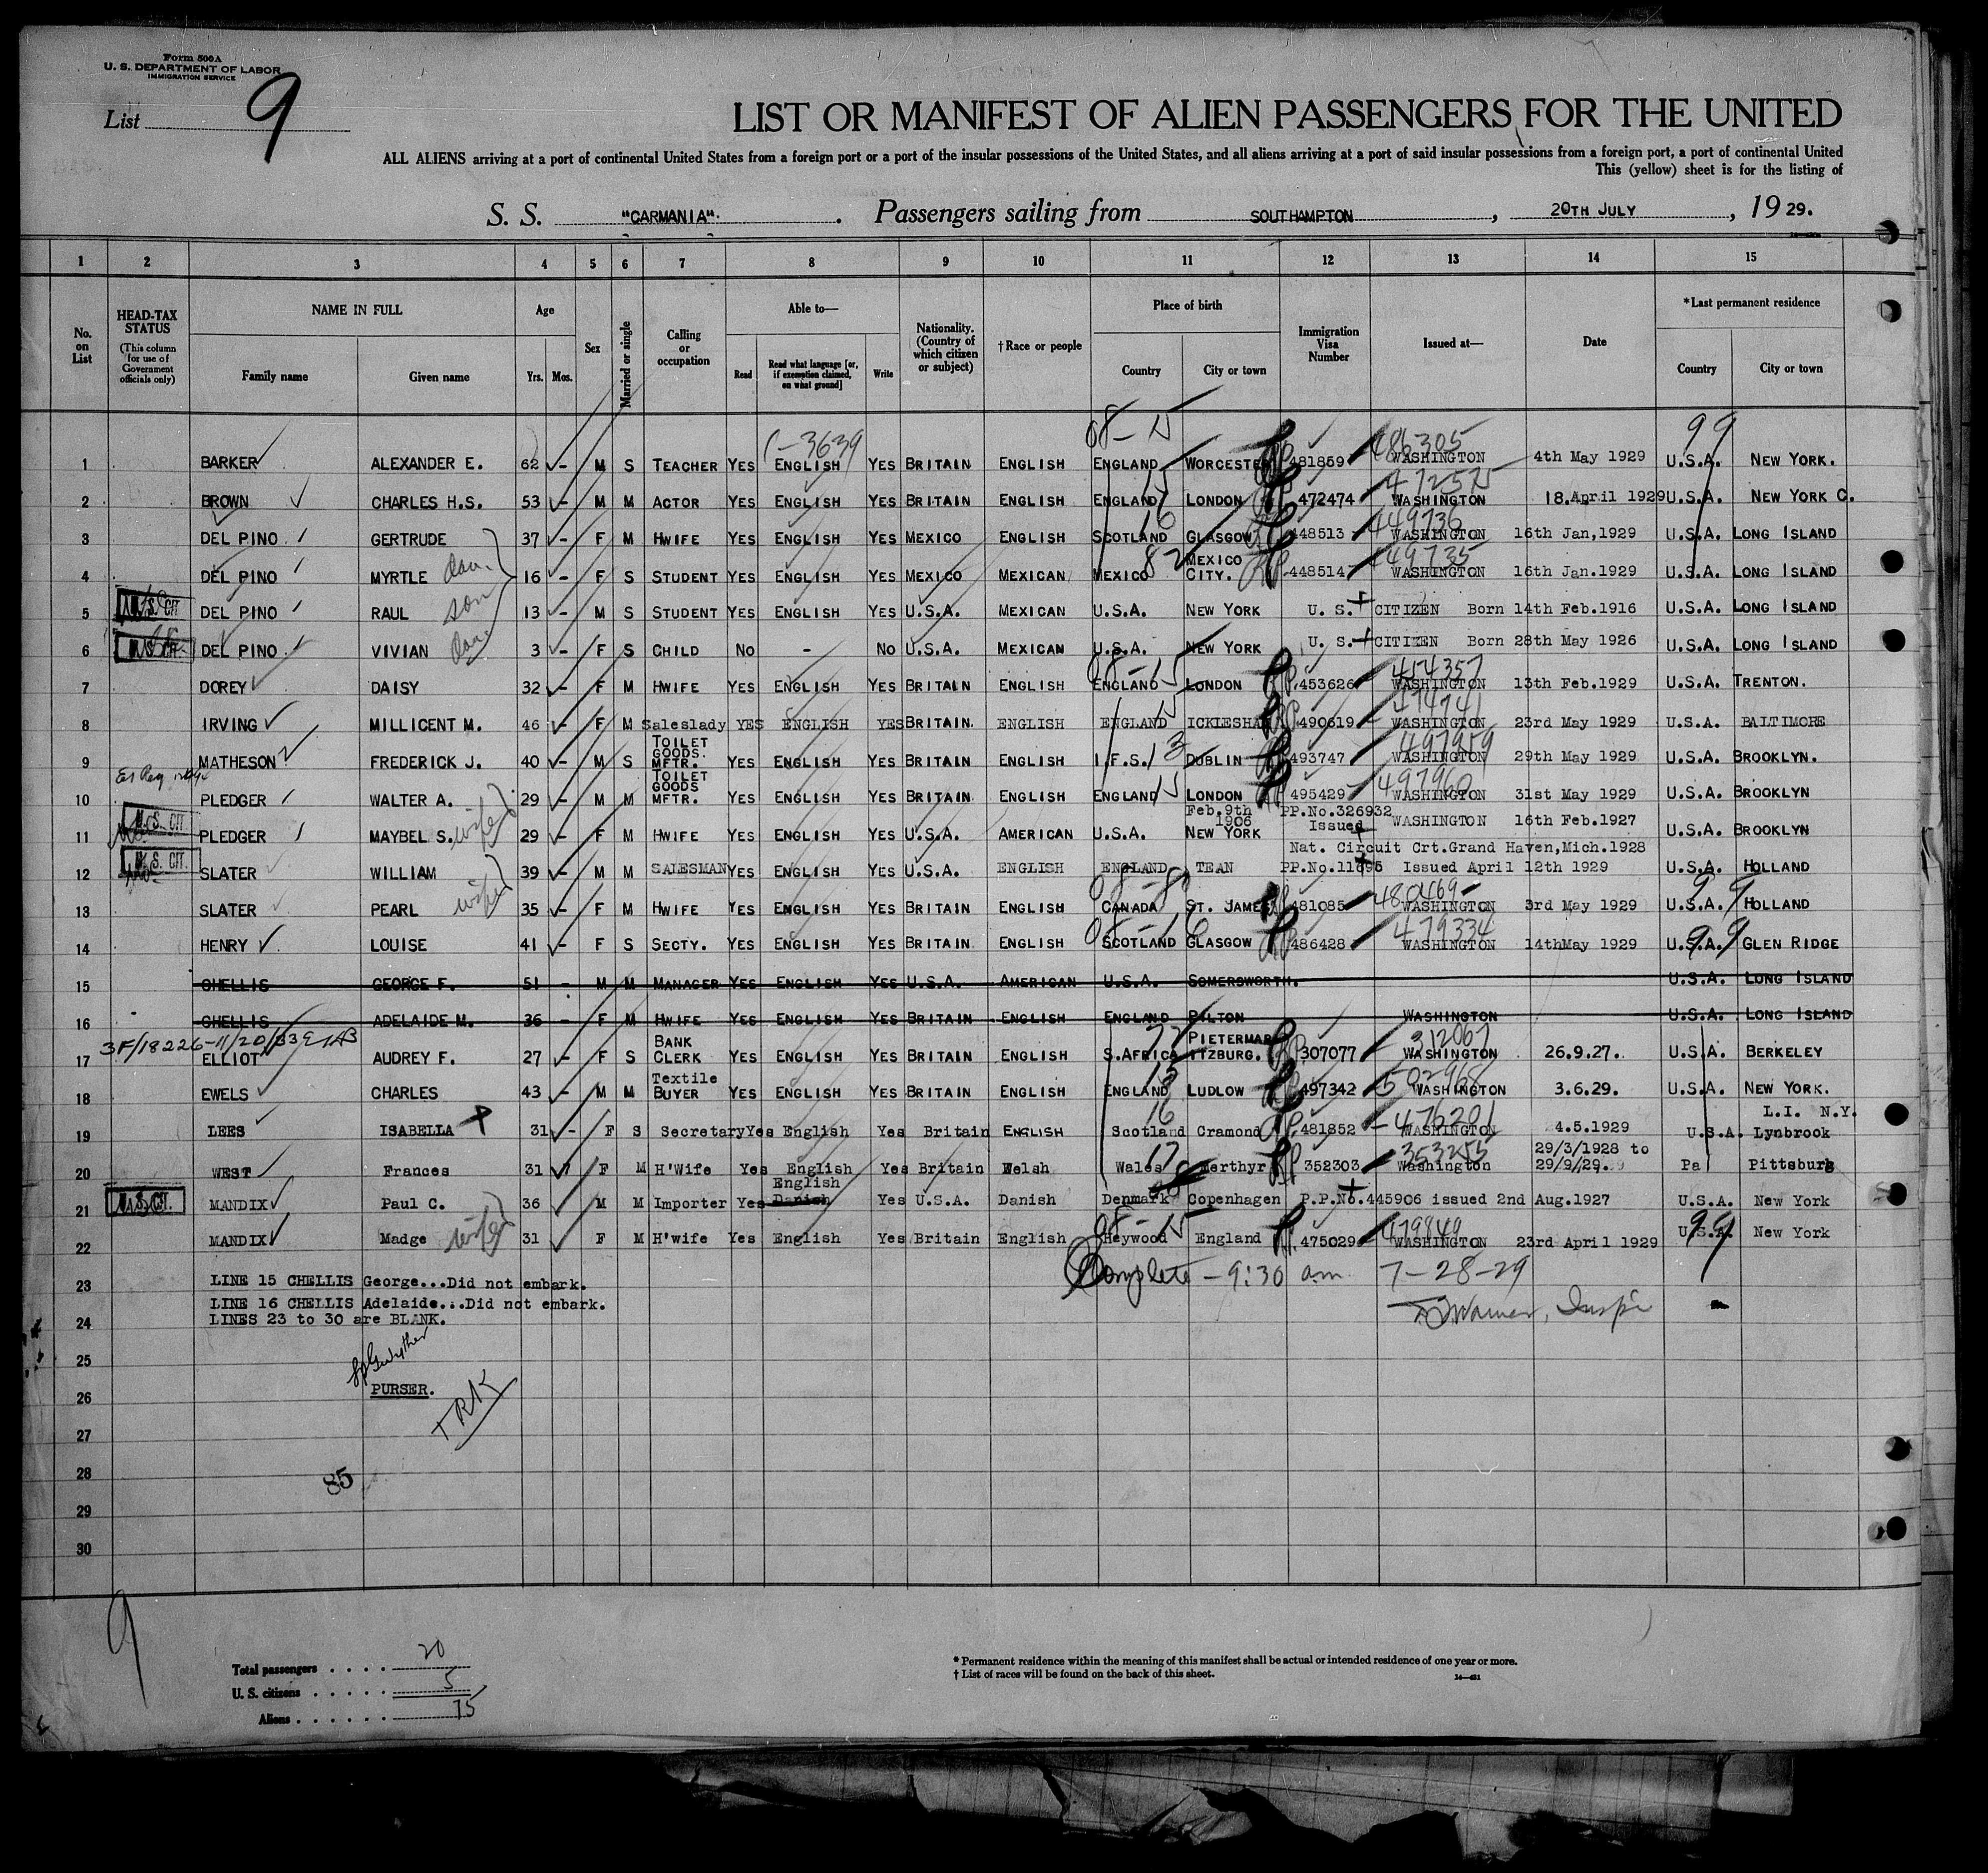 Form 500A
U. S. DEPARTMENT OF LABOR
IMMIGRATION SERVICE
List 9
LIST OR MANIFEST OF ALIEN PASSENGERS FOR THE UNITED
ALL ALIENS arriving at a port of continental United States from a foreign port or a port of the insular possessions of the United States, and all aliens arriving at a port of said insular possessions from a foreign port, a port of continental United
This (yellow) sheet is for the listing of
S. S. "CARMANIA". Passengers sailing from SOUTHAMPTON, 20TH JULY, 1929.
1 2 3 4 5 6 7 8 9 10 11 12 13 14 15
No. on List
HEAD-TAX STATUS (This column for use of Government officials only)
NAME IN FULL Family name Given name
Age Yrs. Mos.
Sex
Married or single
Calling or occupation
Able to— Read Read what language [or, if exemption claimed, on what ground] Write
Nationality. (Country of which citizen or subject)
†Race or people
Place of birth Country City or town
Immigration Visa Number
Issued at—
Date
*Last permanent residence Country City or town
08-15 99
1-3639 486305
1 BARKER ALEXANDER E. 62 - M S TEACHER YES ENGLISH YES BRITAIN ENGLISH ENGLAND WORCESTER 481859 WASHINGTON 4th May 1929 U.S.A. NEW YORK.
2 BROWN CHARLES H.S. 53 - M M ACTOR YES ENGLISH YES BRITAIN ENGLISH ENGLAND LONDON 472474 WASHINGTON 18.April 1929 U.S.A. NEW YORK C.
16 449736
3 DEL PINO GERTRUDE 37 - F M HWIFE YES ENGLISH YES MEXICO ENGLISH SCOTLAND GLASGOW 448513 WASHINGTON 16th Jan,1929 U.S.A. LONG ISLAND
82 449735
4 DEL PINO MYRTLE dau. 16 - F S STUDENT YES ENGLISH YES MEXICO MEXICAN MEXICO MEXICO CITY. 448514 WASHINGTON 16th Jan.1929 U.S.A. LONG ISLAND
U.S. CIT.
5 DEL PINO RAUL son 13 - M S STUDENT YES ENGLISH YES U.S.A. MEXICAN U.S.A. NEW YORK U. S. CITIZEN Born 14th Feb.1916 U.S.A. LONG ISLAND
U.S. CIT.
6 DEL PINO VIVIAN dau 3 - F S CHILD NO - NO U.S.A. MEXICAN U.S.A. NEW YORK U. S. CITIZEN Born 28th May 1926 U.S.A. LONG ISLAND
08-15
7 DOREY DAISY 32 - F M HWIFE YES ENGLISH YES BRITAIN ENGLISH ENGLAND LONDON 453626 WASHINGTON 13th Feb.1929 U.S.A. TRENTON.
8 IRVING MILLICENT M. 46 - F M Saleslady YES ENGLISH YES BRITAIN. ENGLISH ENGLAND ICKLESHAM 490619 WASHINGTON 23rd May 1929 U.S.A. BALTIMORE
13 497959
9 MATHESON FREDERICK J. 40 - M S TOILET GOODS. MFTR. YES ENGLISH YES BRITAIN ENGLISH I.F.S. DUBLIN 493747 WASHINGTON 29th May 1929 U.S.A. BROOKLYN.
15 497960
10 PLEDGER WALTER A. 29 - M M TOILET GOODS MFTR. YES ENGLISH YES BRITAIN ENGLISH ENGLAND LONDON 495429 WASHINGTON 31st May 1929 U.S.A. BROOKLYN
U.S. CIT.
11 PLEDGER MAYBEL S. wife 29 - F M HWIFE YES ENGLISH YES U.S.A. AMERICAN U.S.A. Feb.9th 1906 NEW YORK PP.No.326932 Issued WASHINGTON 16th Feb.1927 U.S.A. BROOKLYN
Nat. Circuit Crt.Grand Haven,Mich.1928
U.S. CIT.
12 SLATER WILLIAM 39 - M M SALESMAN YES ENGLISH YES U.S.A. ENGLISH ENGLAND TEAN PP.No.11695 Issued April 12th 1929 U.S.A. HOLLAND
480469 99
13 SLATER PEARL wife 35 - F M HWIFE YES ENGLISH YES BRITAIN ENGLISH CANADA ST. JAMES 481085 WASHINGTON 3rd May 1929 U.S.A. HOLLAND
08-16 479334 99
14 HENRY LOUISE 41 - F S SECTY. YES ENGLISH YES BRITAIN ENGLISH SCOTLAND GLASGOW 486428 WASHINGTON 14thMay 1929 U.S.A. GLEN RIDGE
15 CHELLIS GEORGE F. 51 - M M MANAGER YES ENGLISH YES U.S.A. AMERICAN U.S.A. SOMERSWORTH. U.S.A. LONG ISLAND
16 CHELLIS ADELAIDE M. 36 - F M HWIFE YES ENGLISH YES BRITAIN ENGLISH ENGLAND PILTON WASHINGTON U.S.A. LONG ISLAND
77 312067
17 ELLIOT AUDREY F. 27 - F S BANK CLERK YES ENGLISH YES BRITAIN ENGLISH S.AFRICA PIETERMAR ITZBURG. 307077 WASHINGTON 26.9.27. U.S.A. BERKELEY
15 502968
18 EWELS CHARLES 43 - M M Textile BUYER YES ENGLISH YES BRITAIN ENGLISH ENGLAND LUDLOW 497342 WASHINGTON 3.6.29. U.S.A. NEW YORK.
16 476201
19 LEES ISABELLA 31 - F S Secretary Yes English Yes Britain ENGLISH Scotland Cramond 481852 WASHINGTON 4.5.1929 U.S.A. L.I. N.Y. Lynbrook
17 353255
20 WEST Frances 31 F M H'Wife Yes English Yes Britain Welsh Wales Merthyr 352303 Washington 29/3/1928 to 29/9/29. Pa Pittsburg
U.S. CIT.
21 MANDIX Paul C. 36 M M Importer Yes English Danish Yes U.S.A. Danish Denmark Copenhagen P.P.No.445906 issued 2nd Aug.1927 U.S.A. New York
08-15 479849 99
22 MANDIX Madge wife 31 F M H'wife Yes English Yes Britain English Heywood England 475029 WASHINGTON 23rd April 1929 U.S.A. New York
Complete - 9:30 a.m. 7-28-29
23 LINE 15 CHELLIS George...Did not embark.
LINE 16 CHELLIS Adelaide...Did not embark.
24 LINES 23 to 30 are BLANK.
25
PURSER.
26
TRK
27
28
85
29
30
9
Total passengers . . . . 20
U. S. citizens . . . . . 5
Aliens . . . . . . 15
* Permanent residence within the meaning of this manifest shall be actual or intended residence of one year or more.
† List of races will be found on the back of this sheet.